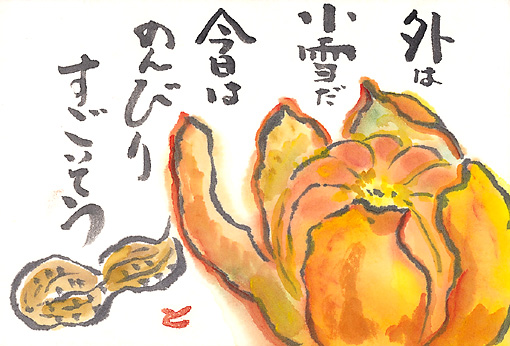 外は
小雪だ
今日は
のんびり
すごそう
と